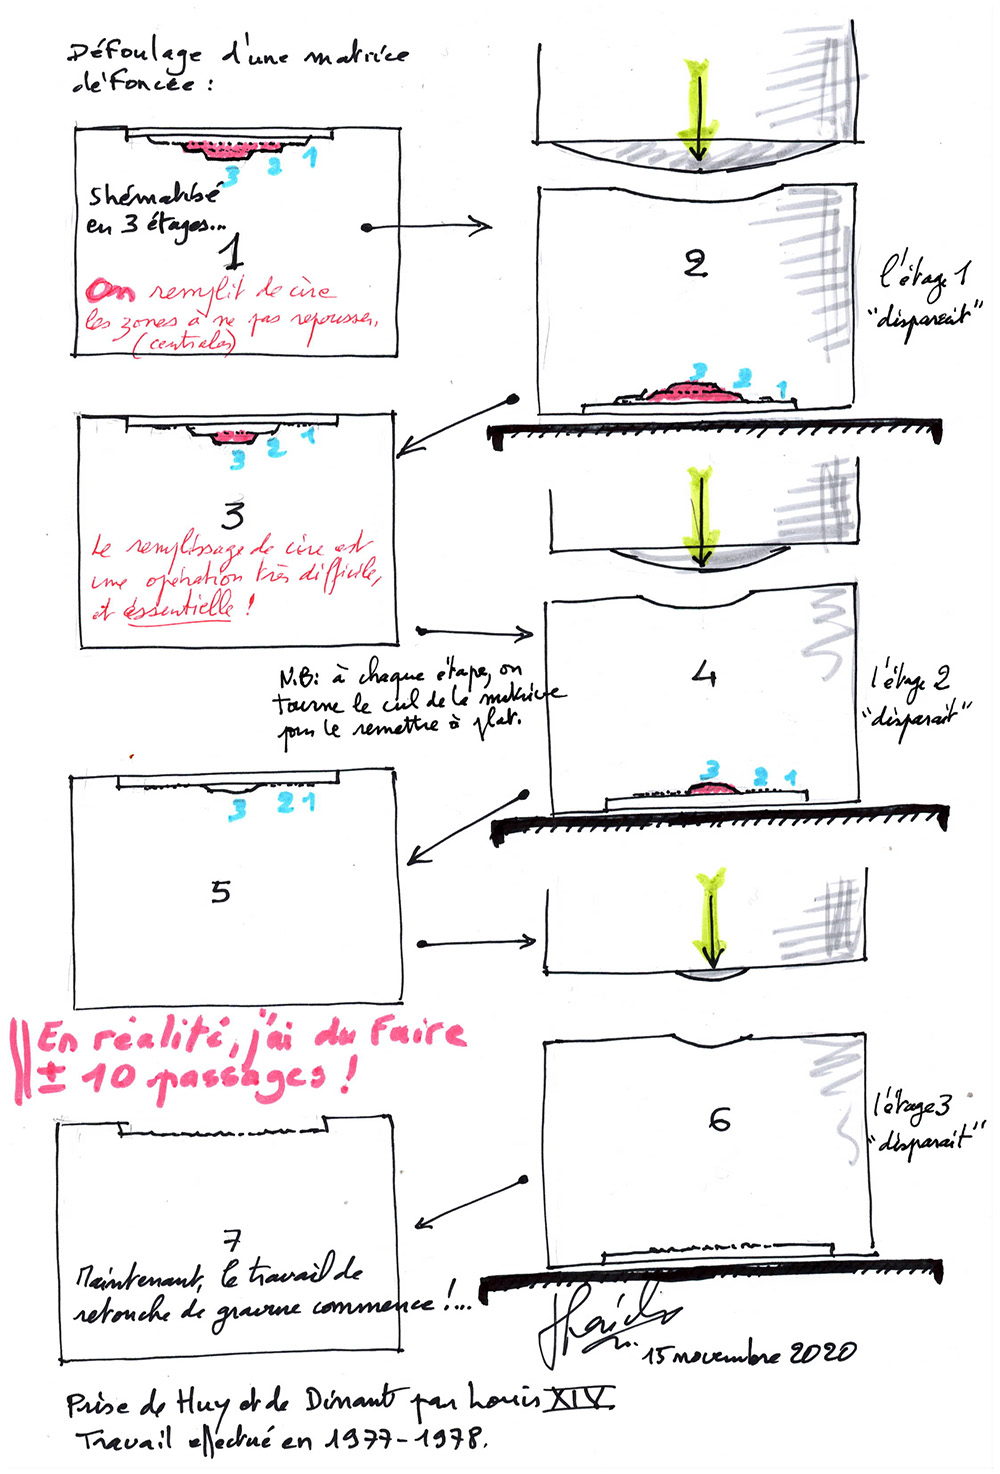 Défoulage d'une matrice
défoncée :
1
2
3
Shématisé
en 3 étages...
1
On remplit de cire
les zones à ne pas repousser.
(centrales)
2
l'étage 1
"disparait"
3
2
1
1
2
3
3
Le remplissage de cire est
une opération très difficile,
et essentielle !
N.B: à chaque étape, on
tourne le cul de la matrice
pour le remettre à plat.
4
l'étage 2
"disparait"
3
2
1
3
2
1
5
En réalité, j'ai du faire
± 10 passages !
6
l'étage 3
"disparait"
7
Maintenant, le travail de
retouche de gravure commence !...
15 novembre 2020
Prise de Huy et de Dinant par Louis XIV.
Travail effectué en 1977-1978.